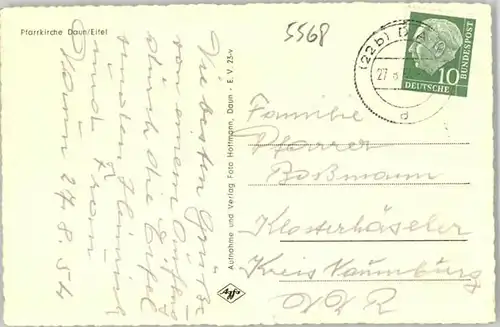 Pfarrkirche Daun/Eifel
5568
Die besten Grüße
von einem
durch die Eifel
senden Heinrich
und Frau
Daun 27.8.54
Aufnahme und Verlag Foto Hoffmann, Daun - E. V. 25-v
afka
(22b) DAUN
27
d
10
DEUTSCHE
BUNDESPOST
Familie
Pfarrer
Boßmann
Klosterhäseler
Kreis Naumburg
DDR